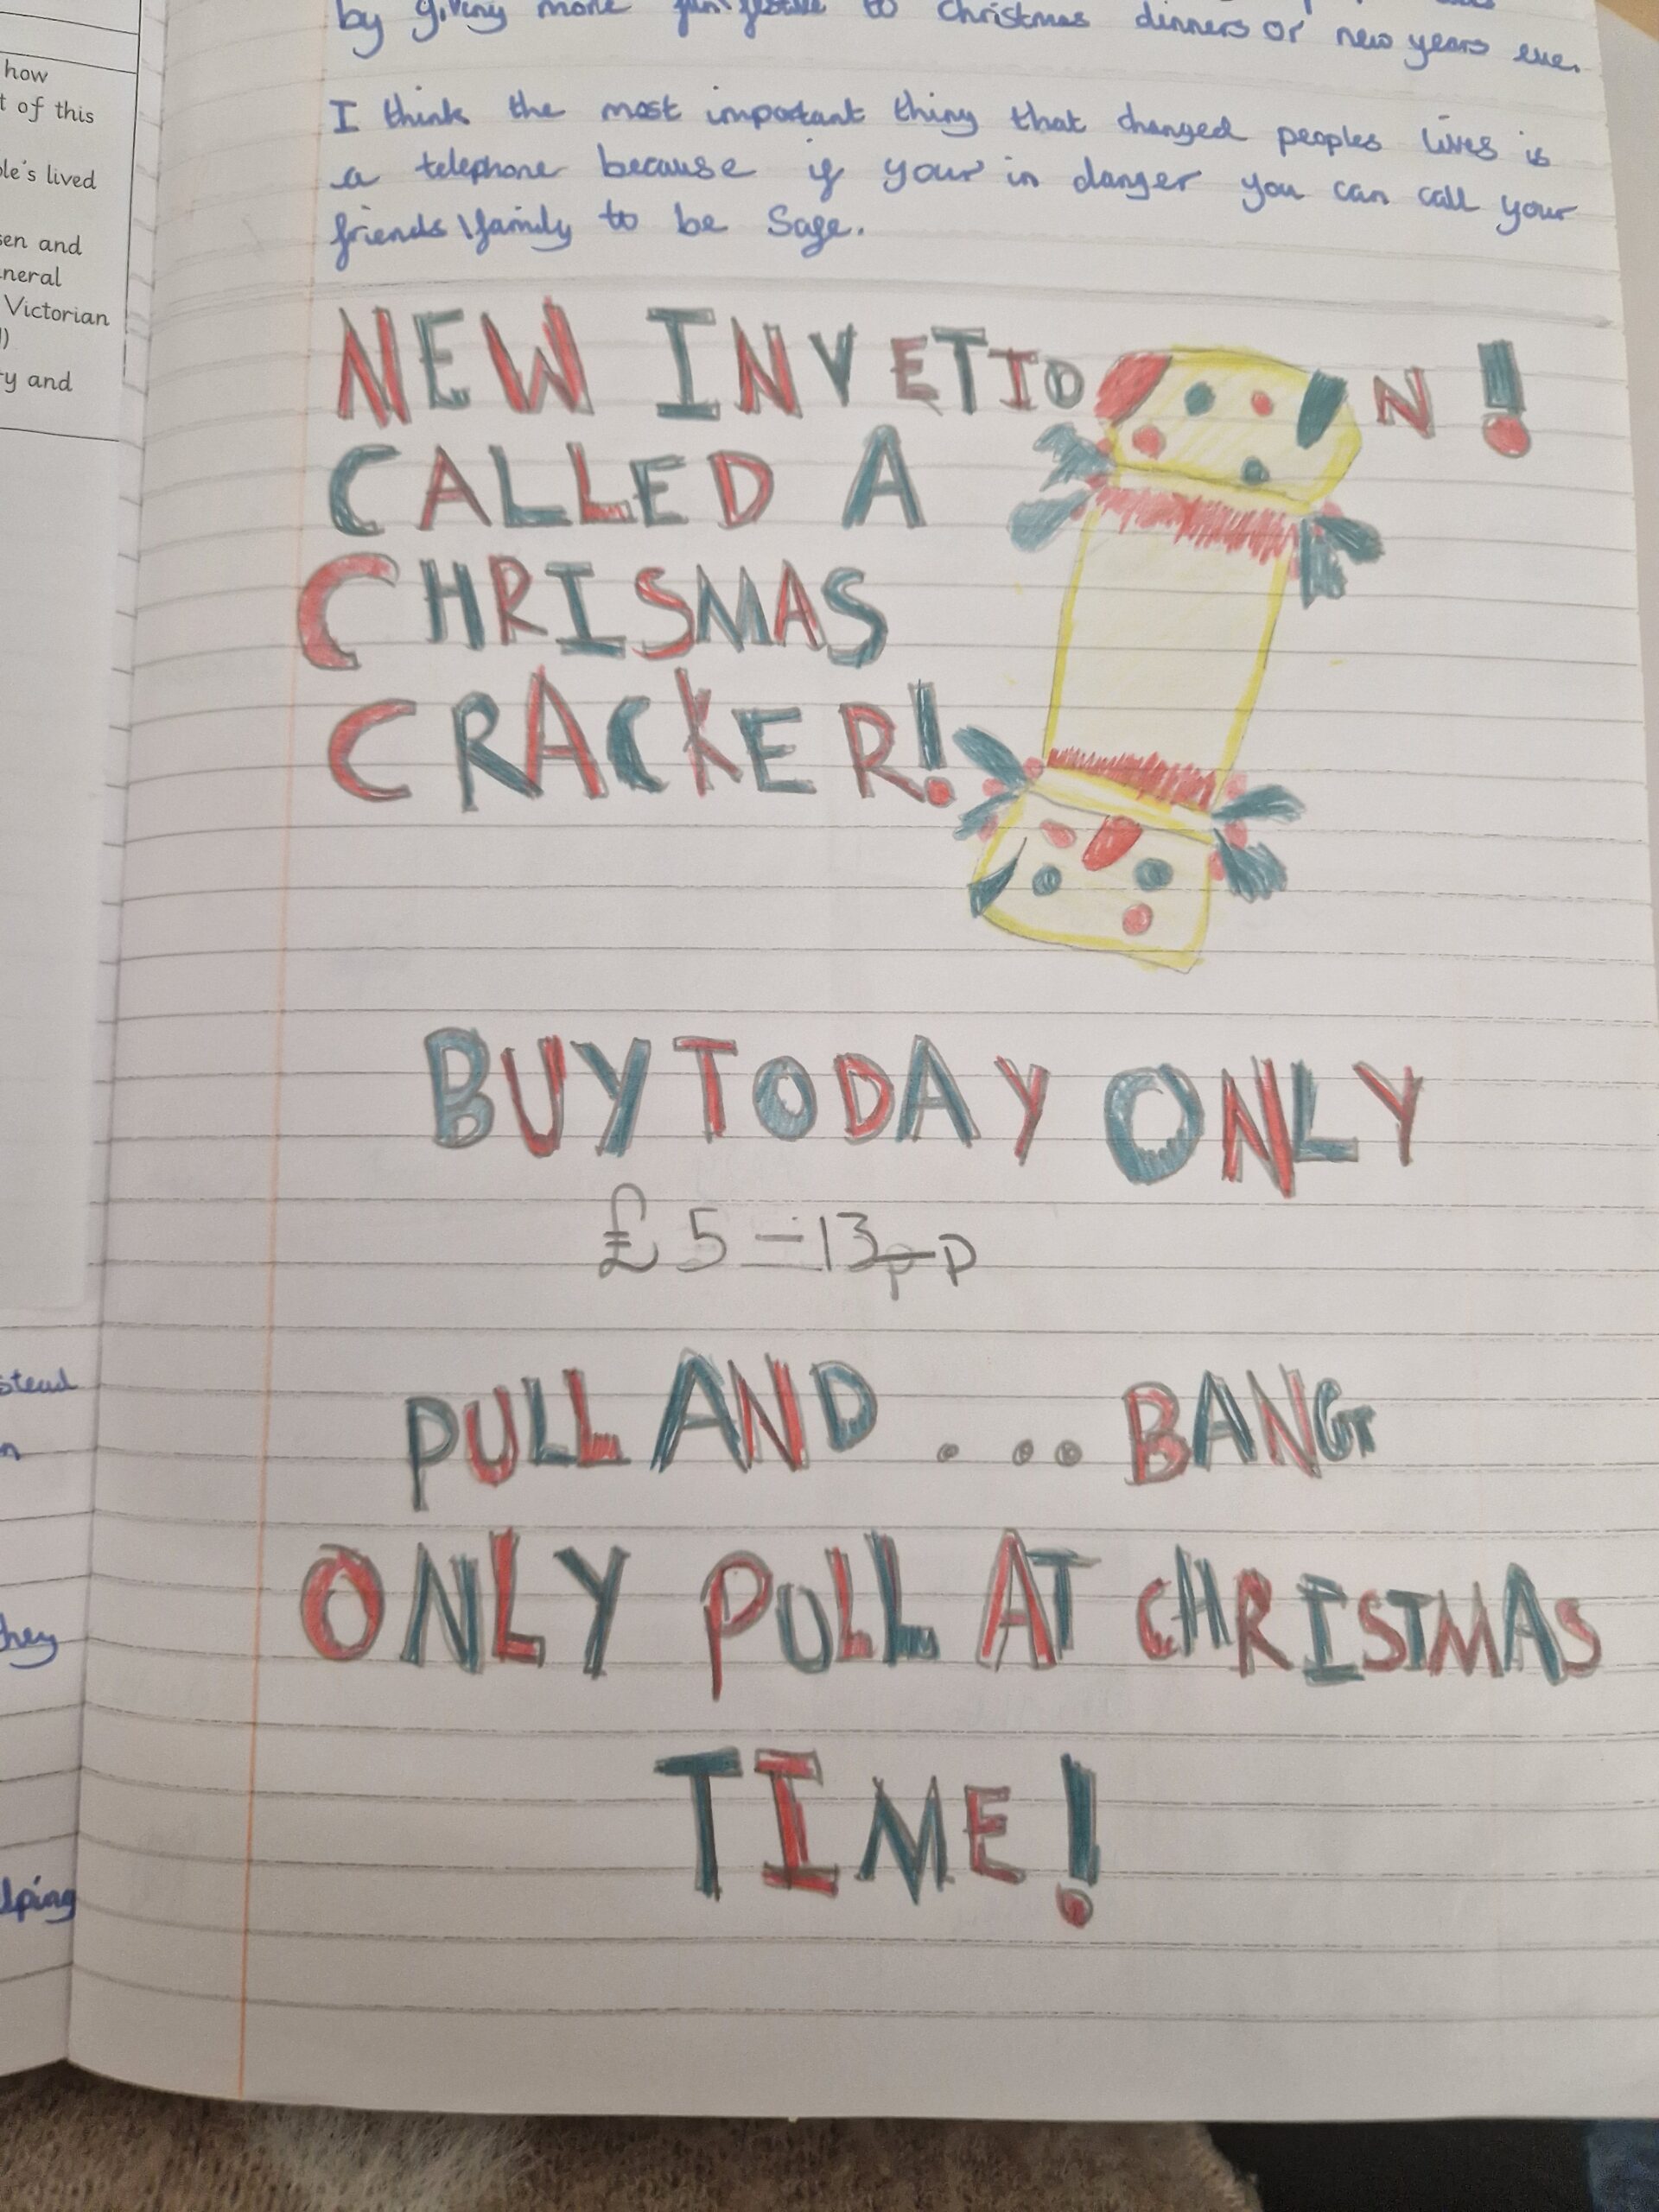 how
t of this
le's lived
sen and
neral
Victorian
)
ry and
stead
n
hey
lping
by giving more fun festive to Christmas dinners or new years eve.
I think the most important thing that changed peoples lives is
a telephone because if your in danger you can call your
friends\family to be Safe.
NEW INVETION!
CALLED A
CHRISMAS
CRACKER!
BUY TODAY ONLY
£5-13p
PULL AND .... BANG
ONLY PULL AT CHRISTMAS
TIME!